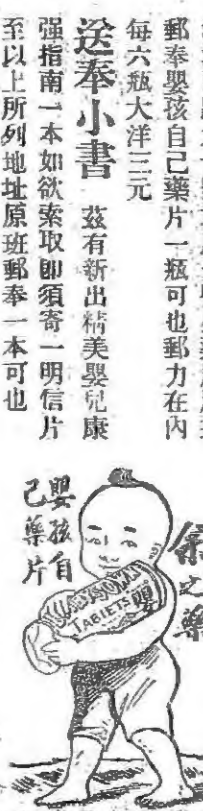 郵奉嬰孩自己藥片一瓶可也郵力在內
每六瓶大洋三元
送奉小書 茲有新出精美嬰兒康
强指南一本如欲索取卽須寄一明信片
至以上所列地址原班郵奉一本可也
之藥
嬰孩自
己藥片
嬰
TABLETS